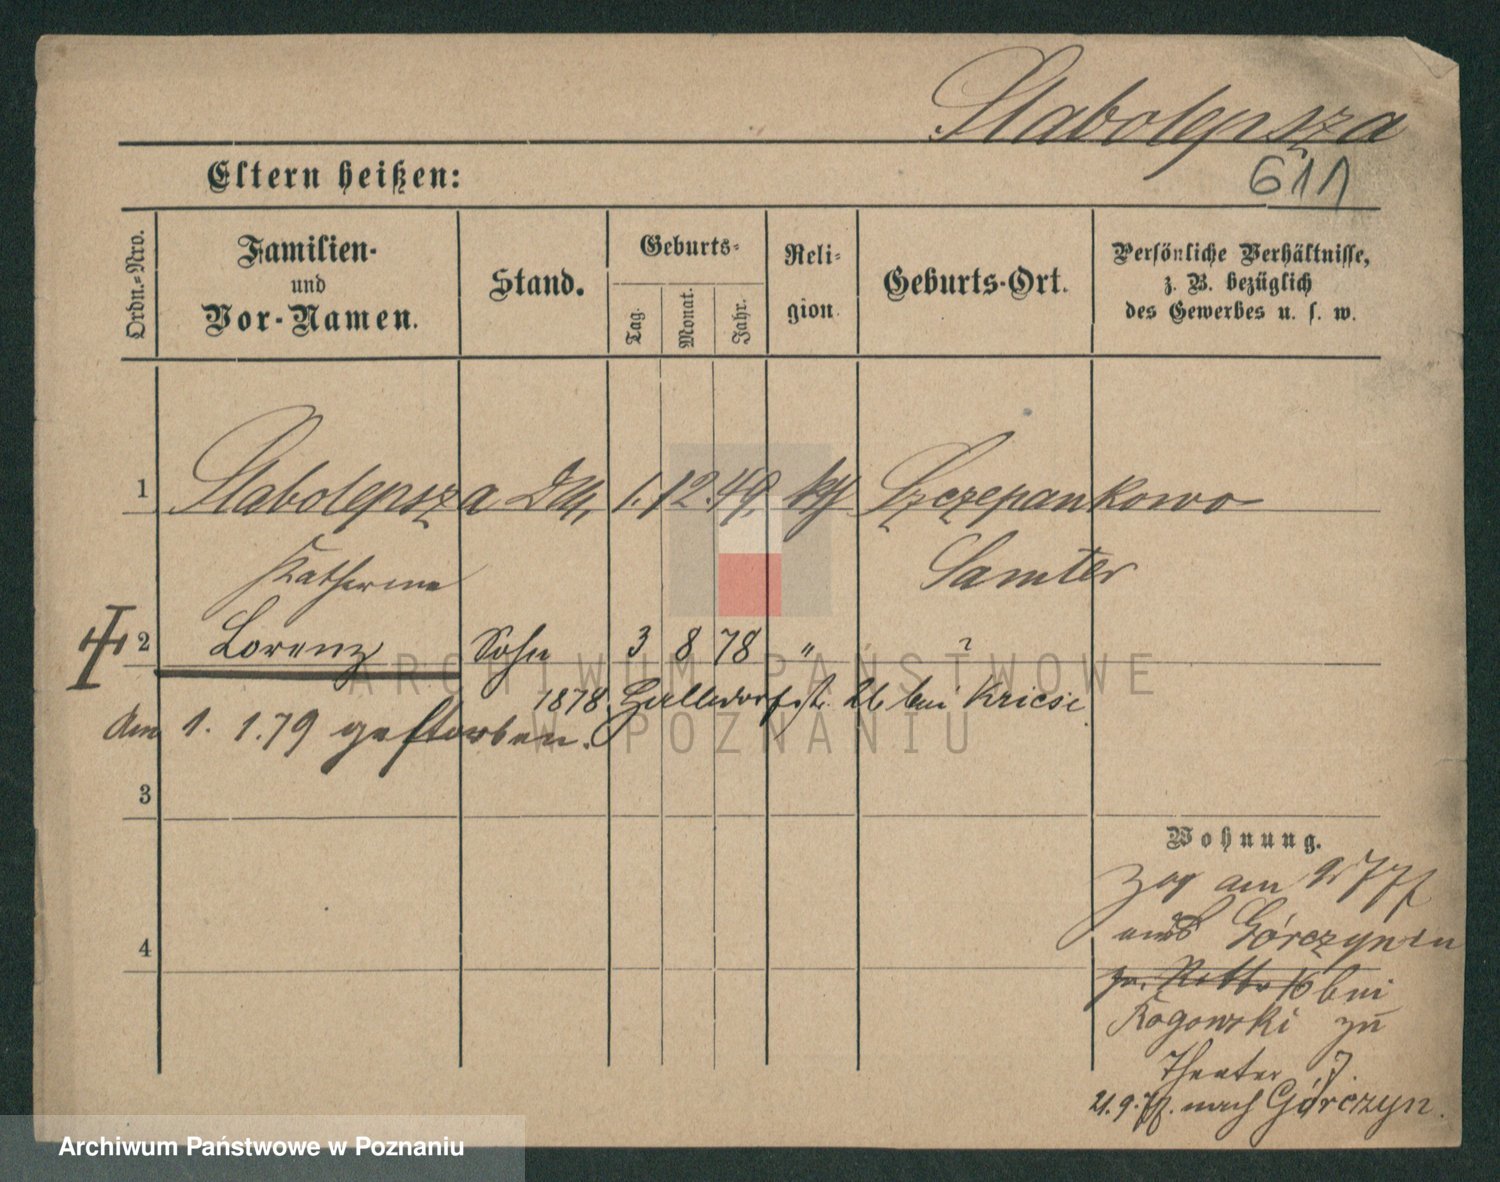 Slabolepsza
611
Eltern heißen:
Ordn.-Nro.
Familien-
und
Vor-Namen.
Stand.
Geburts-
Tag.
Monat.
Jahr.
Reli-
gion
Geburts-Ort.
Persönliche Verhältnisse,
z. B. bezüglich
des Gewerbes u. s. w.
1 Slabolepsza 1. 12. 49. Szczepankowo
Katharina Samter
2 Lorenz Sohn 3 8 78 " ?
1878. 26 bei Kricsi
Am 1. 1. 79 gestorben.
3
Wohnung.
zog am
aus Górczyn in
4
16 bei
Rogowski zu
Theater 7.
21. 9. 77. nach Górczyn.
ARCHIWUM PAŃSTWOWE
W POZNANIU
Archiwum Państwowe w Poznaniu